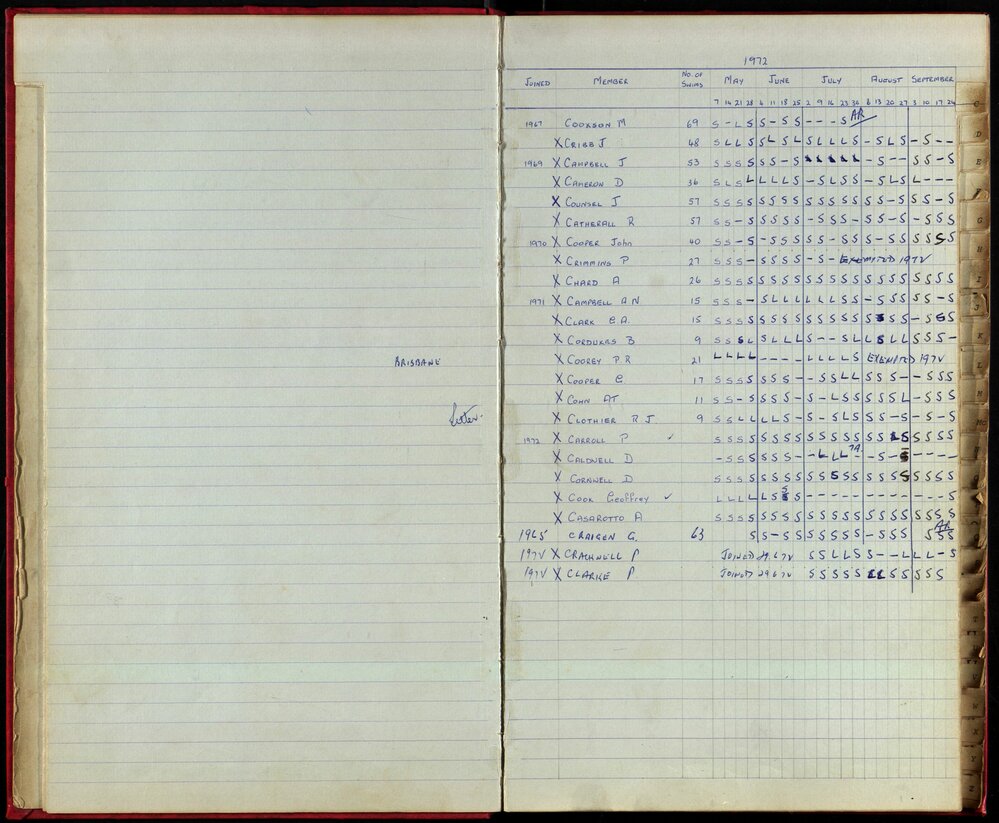 BRISBANE
Letter.
1972
JOINED MEMBER No. OF SWIMS MAY JUNE JULY AUGUST SEPTEMBER
7 14 21 28 4 11 18 25 2 9 16 23 30 6 13 20 27 3 10 17 24
1967 COOKSON M 69 S - L S S - S S - - - S AR
X CRIBB J 48 S L L S S L S L S L L L S - S L S - S - -
1969 X CAMPBELL J 53 S S S S S S - S - S - - S S - S
X CAMERON D 36 S L S L L L L S - S L S S - S L S L - - -
X COUNSEL J 57 S S S S S S S S S S S S S S S - S S S - S
X CATHERALL R 57 S S - S S S S S - S S S - S S - S - S S S
1970 X COOPER John 40 S S - S - S S S S S - S S S - S S S S S S
X CRIMMINS P 27 S S S - S S S S - S - EXEMPTED 197V
X CHARD A 26 S S S S S S S S S S S S S S S S S S S S S
1971 X CAMPBELL A N 15 S S S - S L L L L L L S S - S S S S S - S
X CLARK C A. 15 S S S S S S S S S S S S S S S S S - S S
X CORDUKES B 9 S S S L S L L L S - - S L L S L L S S S -
X COOREY P. R 21 L L L L - - - - L L L L S EXEMPTED 197V
X COOPER C 17 S S S S S S S - - S S L L S S S - - S S S
X COHN AT 11 S S - S S S S - S - L S S S S S L - S S S
X CLOTHIER R J 9 S S L L L L S - S - S L S S S - S - S - S
1972 X CARROLL P ✓ S S S S S S S S S S S S S S S L S S S S S
X CALDWELL D - S S S S S S - - L L L - - S - S - - - -
X CORNWELL D S S S S S S S S S S S S S S S S S S S S S
X COOK Geoffrey ✓ L L L L L S S S - - - - - - - - - - - - S
X CASAROTTO A S S S S S S S S S S S S S S S S S S S S S
1965 CRAIGEN G. 63 S S - S S S S S S S - S S S S S S AR
197V X CRACKNELL P JOINED 29.6.7V S S L L S S - - L L L - S
197V X CLARKE P JOINED 29.6.7V S S S S S L L S S S S S
C
D
E
F
G
H
I
J
K
L
M
T
V
W
X
Y
Z